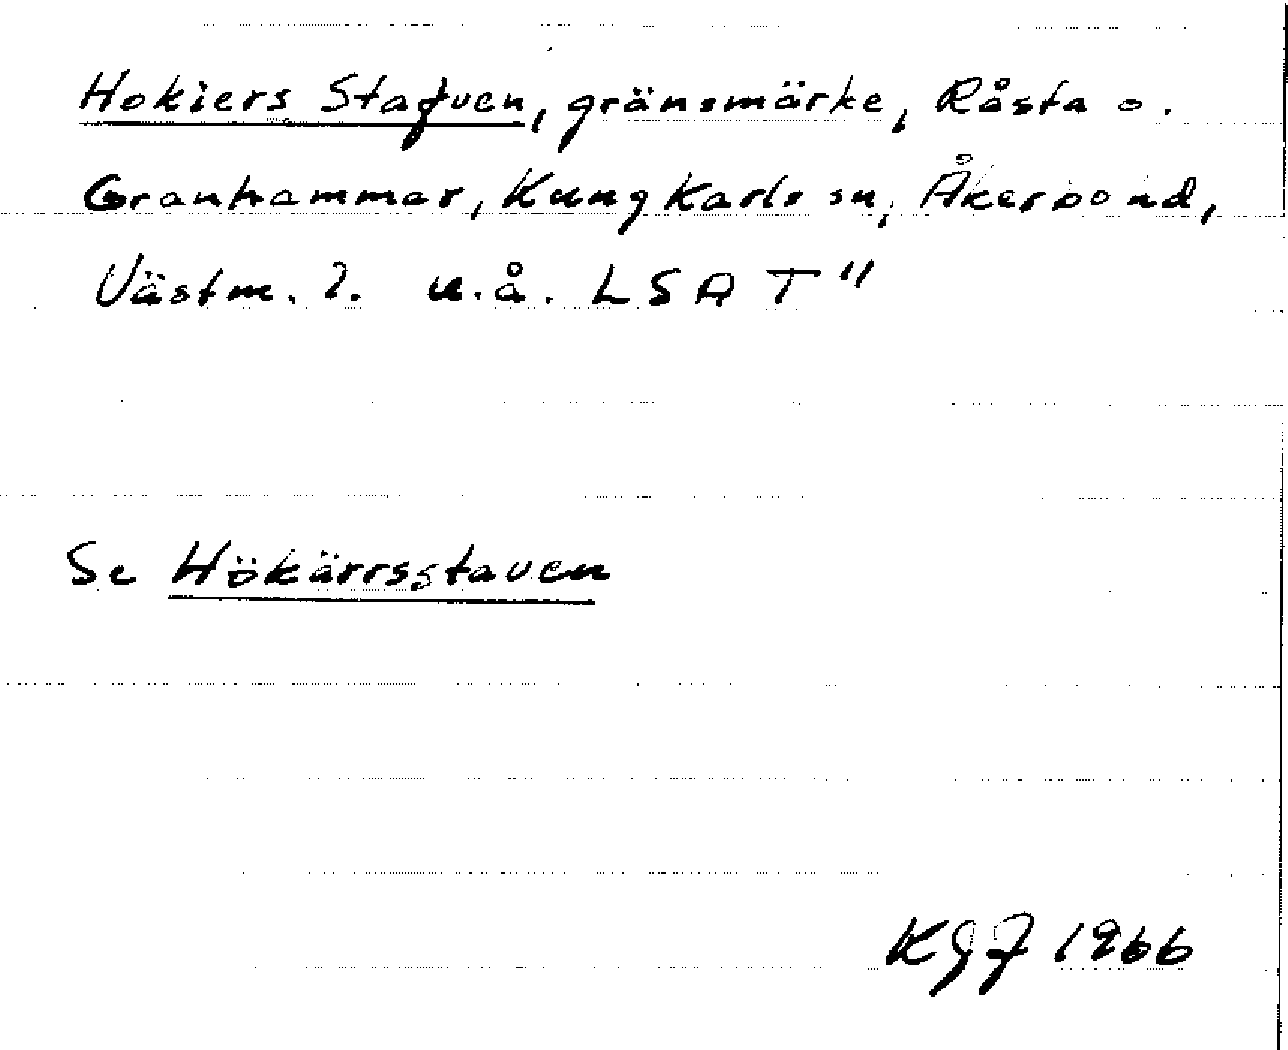 Hokiers Stafven, gränsmärke, Råsta o.
Granhammar, Kung Karls sn, Åkerbo hd,
Västm. l. u.å. LSA T"
Se Hökärrsstaven
1966